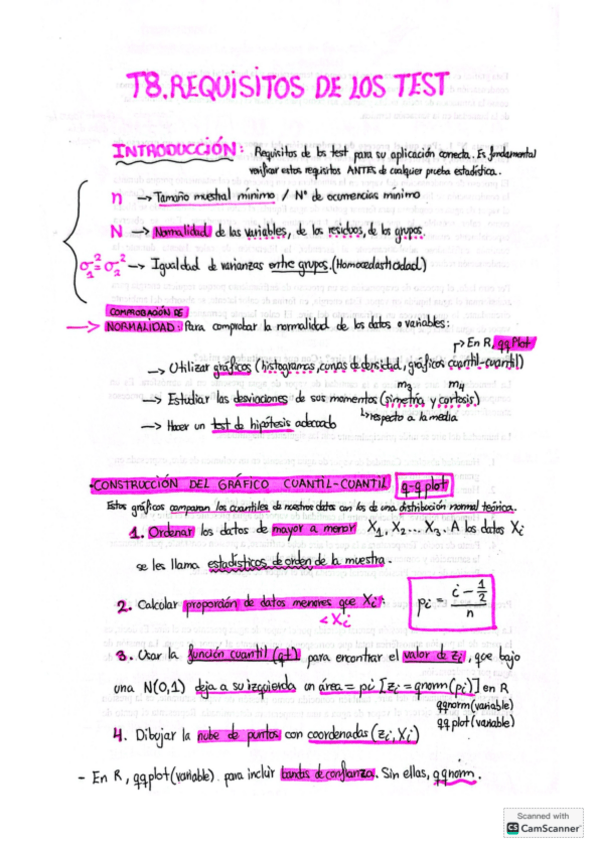 T8. REQUISITOS DE LOS TEST
INTRODUCCIÓN: Requisitos de los test para su aplicación correcta. Es fundamental
verificar estos requisitos ANTES de cualquier prueba estadística.
n → Tamaño muestral mínimo / Nº de ocurrencias mínimo
N → Normalidad de las variables, de los residuos, de los grupos.
σ₁² = σ₂² → Igualdad de varianzas entre grupos. (Homocedasticidad)
COMPROBACIÓN DE
→ NORMALIDAD: Para comprobar la normalidad de los datos o variables:
→ En R, qqPlot
→ Utilizar gráficos (histogramas, curvas de densidad, gráficos cuantil-cuantil)
m₃ m₄
→ Estudiar las desviaciones de sus momentos (simetría y curtosis)
↳ respecto a la media
→ Hacer un test de hipótesis adecuado
·CONSTRUCCIÓN DEL GRÁFICO CUANTIL-CUANTIL q-q plot
Estos gráficos comparan los cuantiles de nuestros datos con los de una distribución normal teórica.
1. Ordenar los datos de mayor a menor X₁, X₂... X₃. A los datos Xi
se les llama estadísticos de orden de la muestra.
2. Calcular proporción de datos menores que Xi: pi = (i - 1/2) / n
< Xi
3. Usar la función cuantil (qt) para encontrar el valor de zi, que bajo
una N(0,1) deja a su izquierda un área = pi [zi = qnorm(pi)] en R
qqnorm(variable)
qqplot(variable)
4. Dibujar la nube de puntos con coordenadas (zi, Xi)
- En R, qqplot(variable). para incluir bandas de confianza. Sin ellas, qqnorm.
Scanned with
CS CamScanner